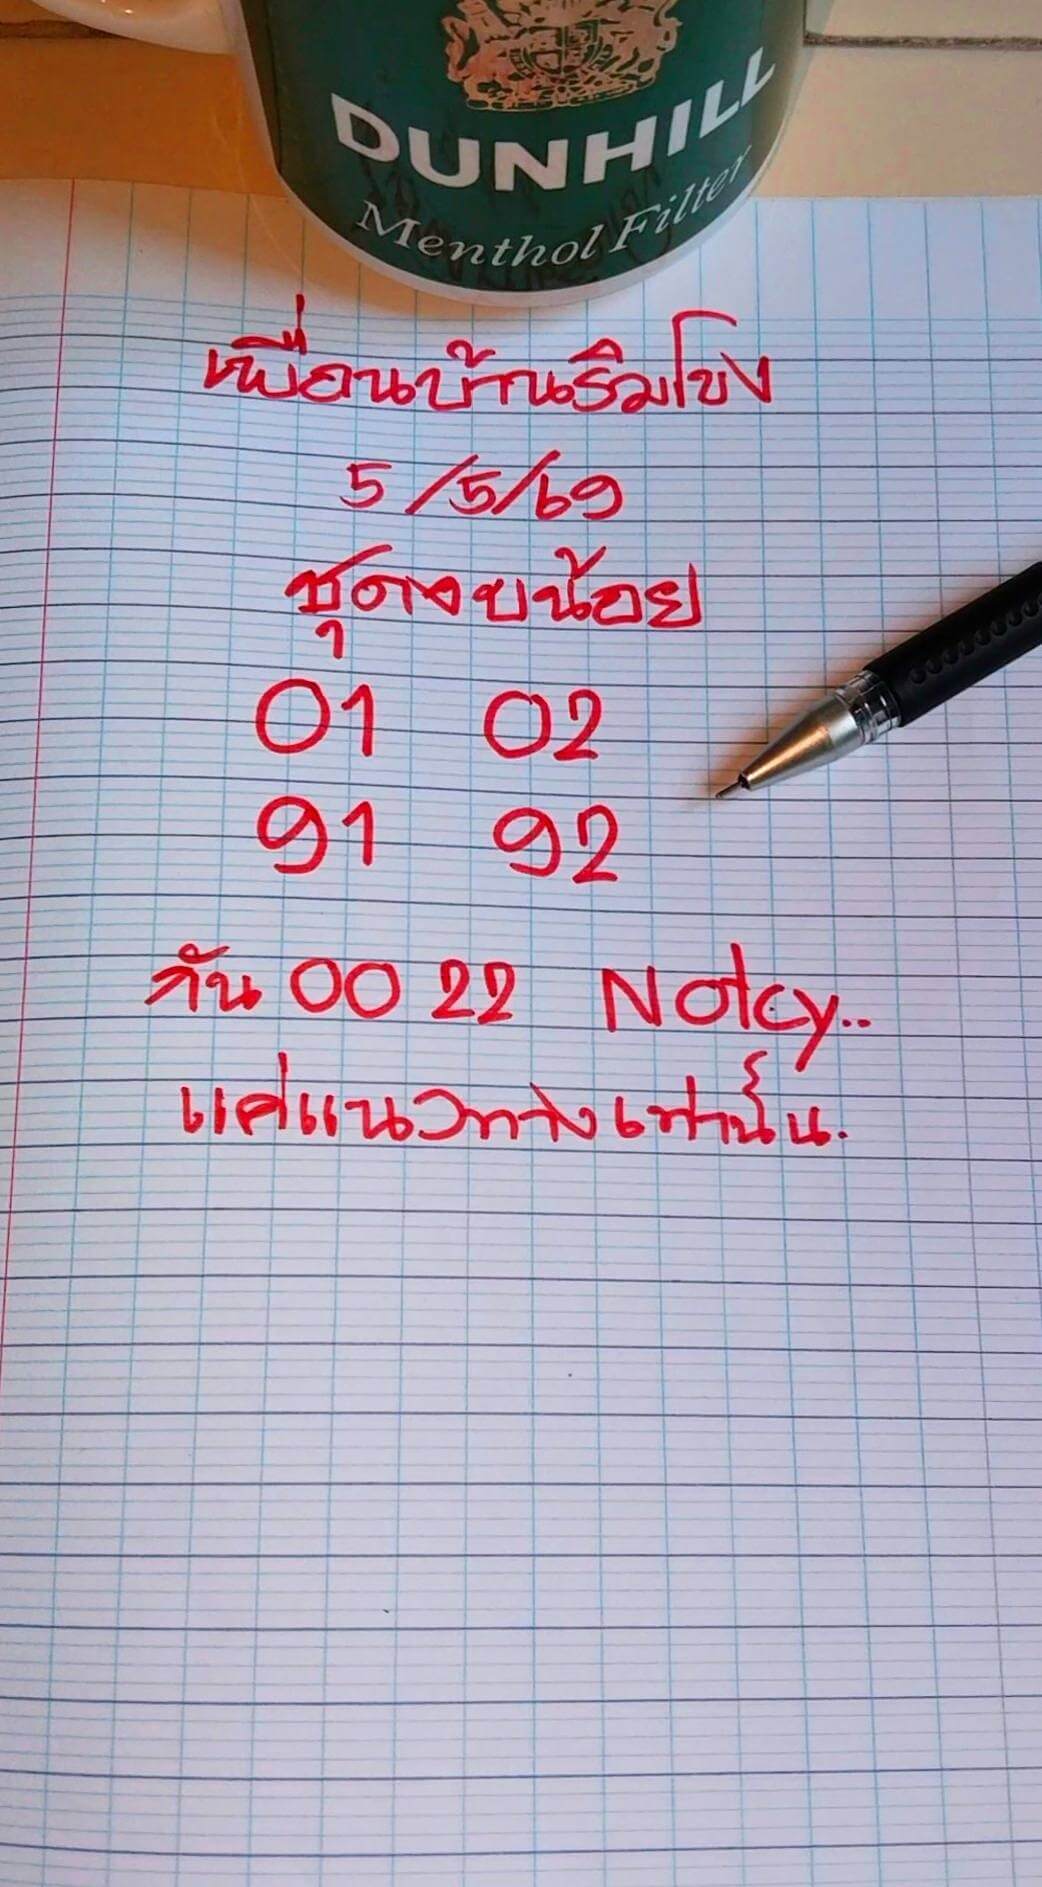 DUNHILL
Menthol Filter
เพื่อนบ้านริมโขง
5/5/69
ชุดงบน้อย
01 02
91 92
กัน 00 22 Notcy..
แค่แนวทางเท่านั้น.